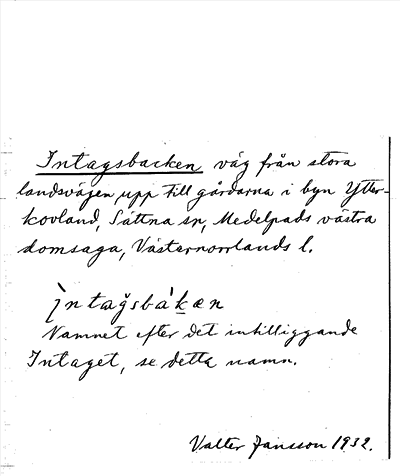 Intagsbacken väg från stora
landsvägen upp till gårdarna i byn Ytter-
kovland, Sättna sn, Medelpads västra
domsaga, Västernorrlands l.
ìntagsbákæn
Namnet efter det intilliggande
Intaget, se detta namn.
Valter Jansson 1932.